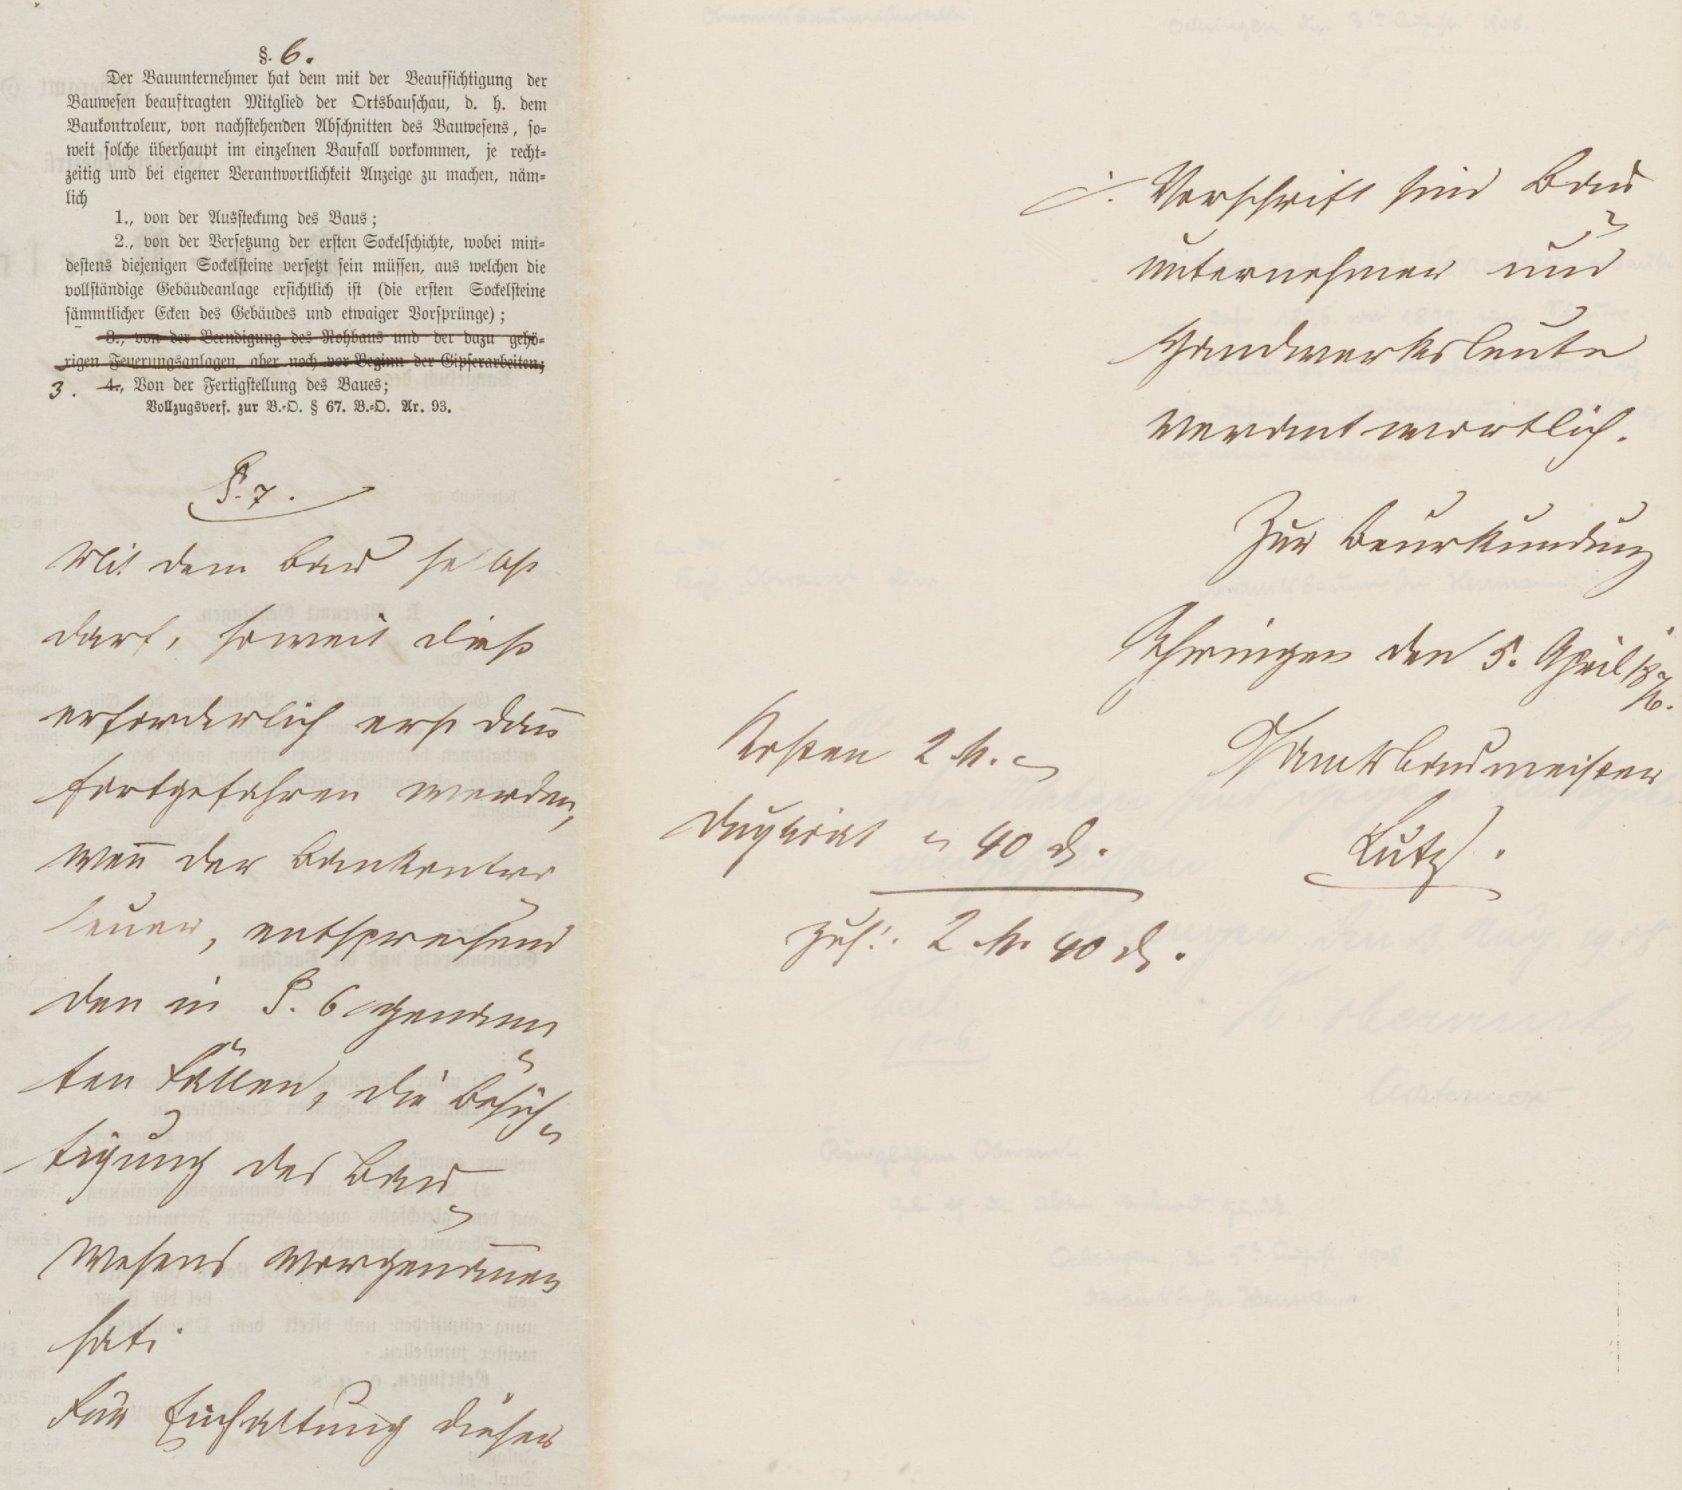 §. 6.
Der Bauunternehmer hat dem mit der Beaufsichtigung der
Bauwesen beauftragten Mitglied der Ortsbauschau, d. h. dem
Baukontroleur, von nachstehenden Abschnitten des Bauwesens, so=
weit solche überhaupt im einzelnen Baufall vorkommen, je recht=
zeitig und bei eigener Verantwortlichkeit Anzeige zu machen, näm=
lich
1., von der Aussteckung des Baus;
2., von der Versetzung der ersten Sockelschichte, wobei min=
destens diejenigen Sockelsteine versetzt sein müssen, aus welchen die
vollständige Gebäudeanlage ersichtlich ist (die ersten Sockelsteine
sämmtlicher Ecken des Gebäudes und etwaiger Vorsprünge);
3., von der Beendigung des Rohbaus und der dazu gehö=
rigen Feuerungsanlagen, aber noch vor Beginn der Gipserarbeiten;
3. 4., Von der Fertigstellung des Baues;
Vollzugsverf. zur B.=O. § 67. B.=O. Ar. 93.
§. 7.
Mit dem Bau selbst
darf, soweit dieß
erforderlich erst dan̄
fortgefahren werden,
wen̄ der Baukontro
leuer, entsprechend
den in §. 6 genann
ten Fällen, die Besich-
tigung des Bau
wesens vorgenom̄en
hat.
Für Einhaltung dieser
Vorschrift sind Bau
unternehmer und
Handwerksleute
verantwortlich.
Zur Beurkundung
Öhringen den 5. April 1876.
Oberamtsbaumeister
Lutz.
Kosten 2 M. "
Duplikat " 40 d.
zus: 2 M. 40 d.